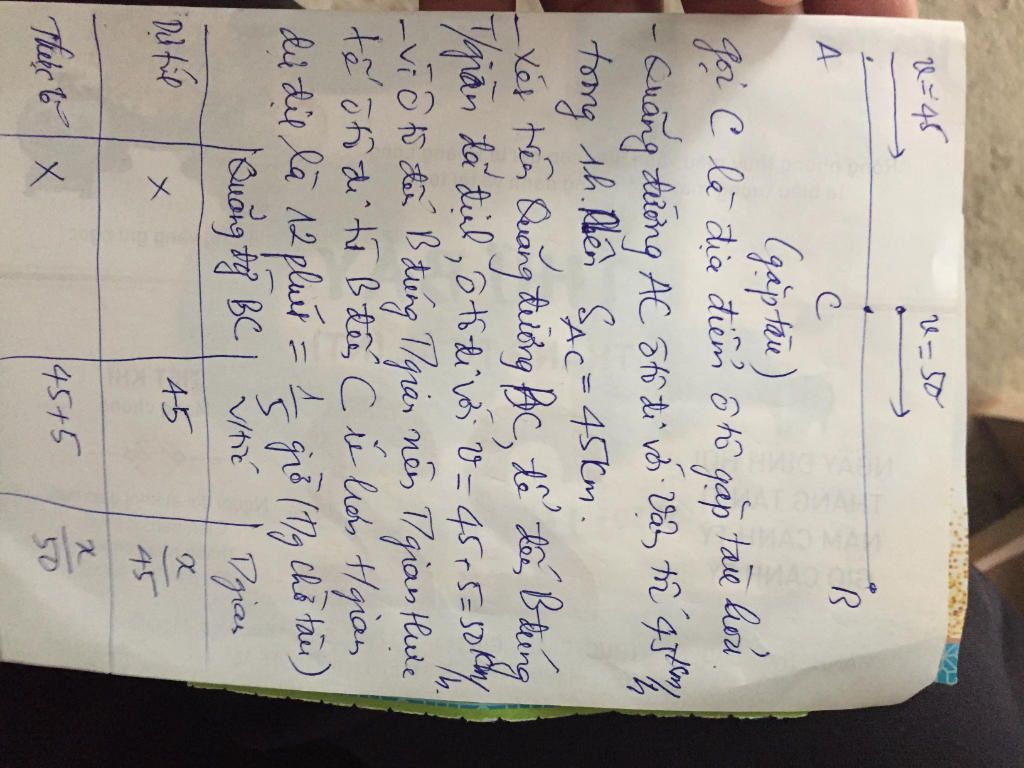 v = 45 v = 50
A C B
(gặp tàu)
gọi C là địa điểm ô tô gặp tàu hỏa.
- Quãng đường AC ô tô đi với vận tốc 45km/h
trong 1h. Nên S AC = 45km.
- Xét trên Quãng đường BC, để đến B đúng
T/gian đã định, ô tô đi với v = 45 + 5 = 50km/h.
- Vì ô tô đến B đúng T/gian nên T/gian thực
tế ô tô đi từ B đến C ít hơn t/gian
dự định là 12 phút = 1/5 giờ (T/g chờ tàu)
Quãng đg BC V/tốc T/gian
Dự tính x 45 x/45
Thực tế x 45+5 x/50
NGÀY ĐINH HỢI
NĂM CANH TÝ
TIẾT KHÍ